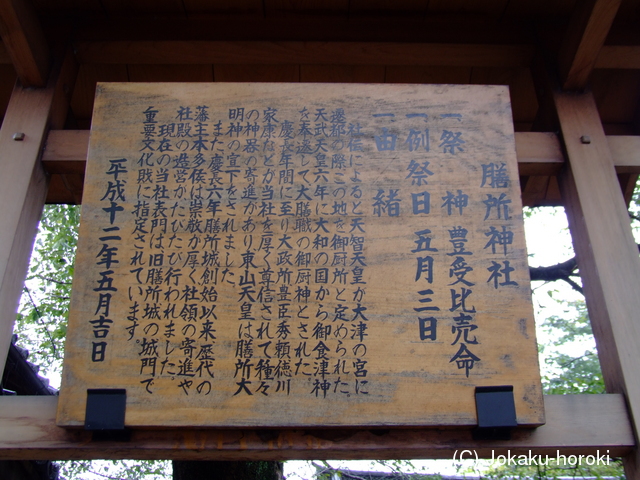 膳所神社
一祭　神　豊受比売命
一例祭日　五月三日
一由　緒
社伝によると天智天皇が大津の宮に
遷都の際この地を御厨所と定められた
天武天皇六年に大和の国から御食津神
を奉遷して大膳職の御厨神とされた。
慶長年間に至り大政所豊臣秀頼徳川
家康などが当社を厚く尊信されて種々
の神器の寄進があり東山天皇は膳所大
明神の宣下をされました。
また慶長六年膳所城創始以来歴代の
藩主本多侯は崇敬が厚く社領の寄進や
社殿の造営がたびたび行われました。
現在の当社表門は旧膳所城の城門で
重要文化財に指定されています。
平成十二年五月吉日
(C) Jokaku-horoki